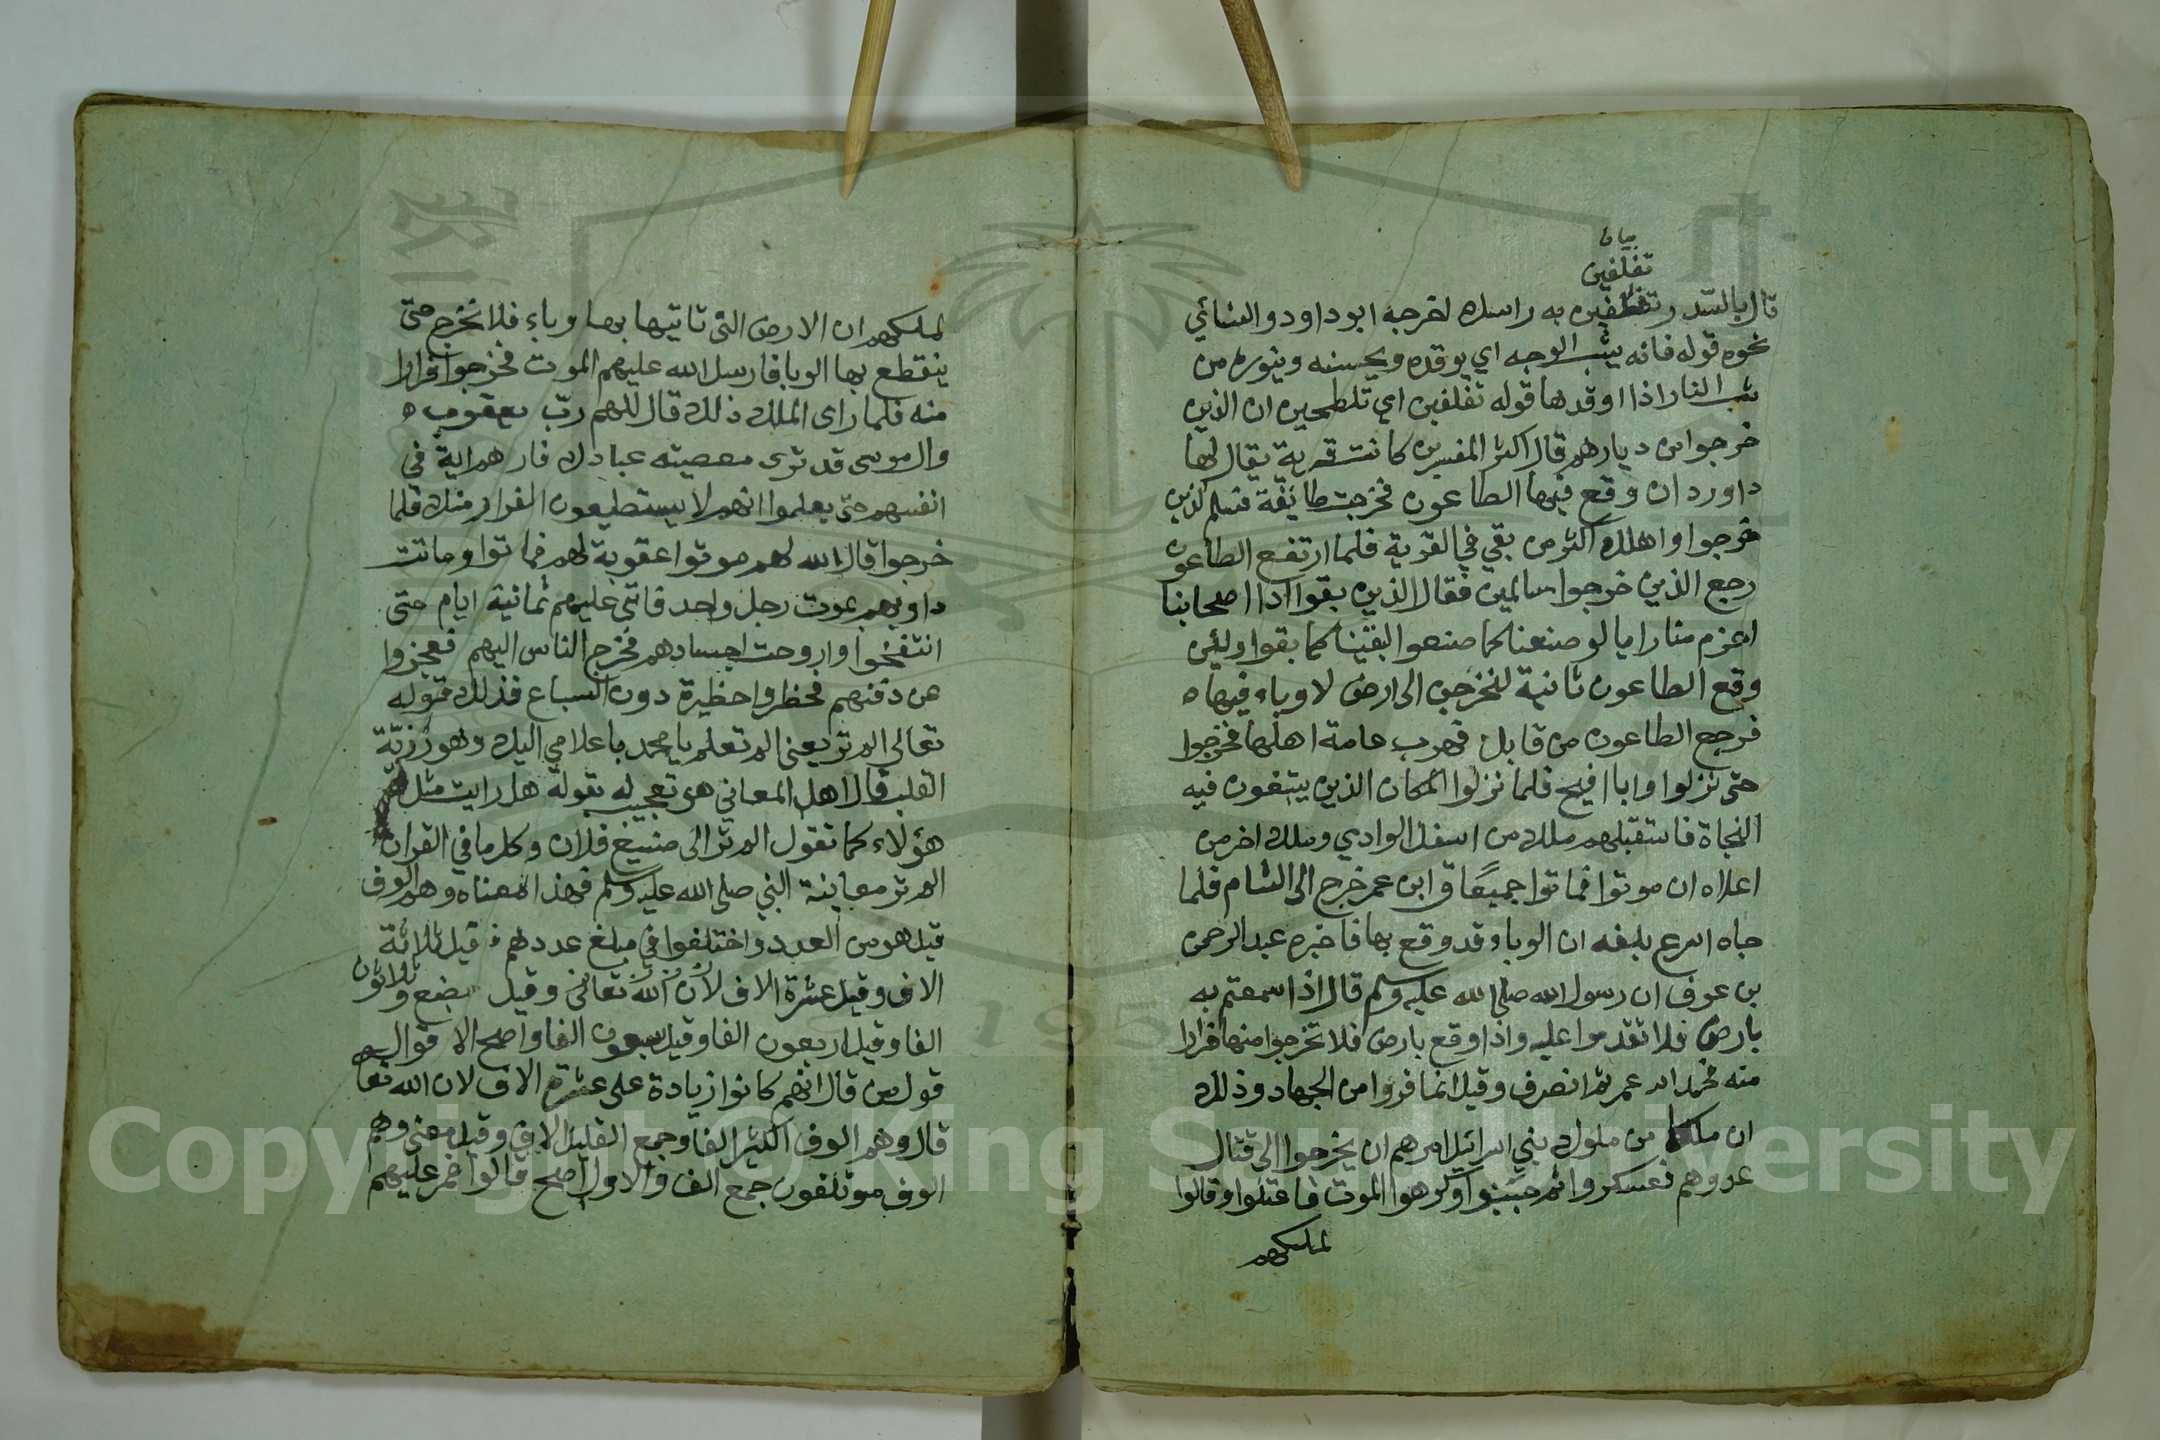 بيان
تغلفين
قال بالسدر تغلفين به راسك اخرجه ابو داود والنسائي
نحوه قوله فانه يشب الوجه اي يوقده ويحسنه وينوره من
شب النار اذا اوقدها قوله تغلفين اي تلطخين ان الذين
خرجوا من ديارهم قال اكثر المفسرين كانت قرية يقال لها
داوردان وقع فيها الطاعون فخرجت طائفة فسلم الذين
خرجوا واهلك اكثر من بقي في القرية فلما ارتفع الطاعون
رجع الذين خرجوا سالمين فقال الذين بقوا اذا اصحابنا
احزم منا رايا لو صنعنا كما صنعوا لبقينا كما بقوا ولئن
وقع الطاعون ثانية لنخرجن الى ارض لا وباء فيها ه
فرجع الطاعون من قابل فهرب عامة اهلها فخرجوا
حتى نزلوا واديا افيح فلما نزلوا المكان الذين يبتغون فيه
النجاة فاستقبلهم ملك من اسفل الوادي وملك اخر من
اعلاه ان موتوا فماتوا جميعًا وابن عمر خرج الى الشام فلما
جاه اسرع بلغه ان الوباء قد وقع بها فاخبره عبد الرحمن
بن عوف ان رسول الله صلى الله عليه وسلم قال اذا سمعتم به
بارض فلا تقدموا عليه واذا وقع بارض فلا تخرجوا منها فرارا
منه فحمد الله عمر ثم انصرف وقيل انما فروا من الجهاد وذلك
ان ملكا من ملوك بني اسرائيل امرهم ان يخرجوا الى قتال
عدوهم فعسكروا ثم جبنوا وكرهوا الموت فاعتلوا وقالوا
لملكهم
لملكهم ان الارض التي تاتيها بها وباء فلا نخرج حتى
ينقطع بها الوبا فارسل الله عليهم الموت فخرجوا فرارا
منه فلما راى الملك ذلك قال اللهم ربّ يعقوب ه
وال موسى قد ترى معصيته عبادك فارهم اية في
انفسهم حتى يعلموا انهم لا يستطيعون الفرار منك فلما
خرجوا قال الله لهم موتوا عقوبة لهم فماتوا وماتت
دوابهم بموت رجل واحد فاتى عليهم ثمانية ايام حتى
انتفخوا واروحت اجسادهم فخرج الناس اليهم فعجزوا
عن دفنهم فحظروا حظيرة دون السباع فذلك قوله
تعالى الم تر يعنى الم تعلم يا محمد باعلامي اليك وهو رؤيّة
القلب قال اهل المعاني هو تعجيب له بقوله هل رايت مثل
هؤلاء كما تقول الم تر الى صنيع فلان وكل ما في القران
الم تر معاينة النبي صلى الله عليه وسلم فهذا معناه وهم الوف
قيل هو من العدد واختلفوا في مبلغ عددهم فقيل ثلاثة
الاف وقيل عشرة الاف لان الله تعالى وقيل بضع وثلاثون
الفا وقيل اربعون الفا وقيل سبعون الفا واصح الاقوال
قول من قال انهم كانوا زيادة على عشرة الاف لان الله تعا
قال وهم الوف الكثير الفا وجمع القليل الاف وقيل معنى وهم
الوف موتلفون جمع الف والاول اصح قالوا فمر عليهم
Copyright © King Saud University